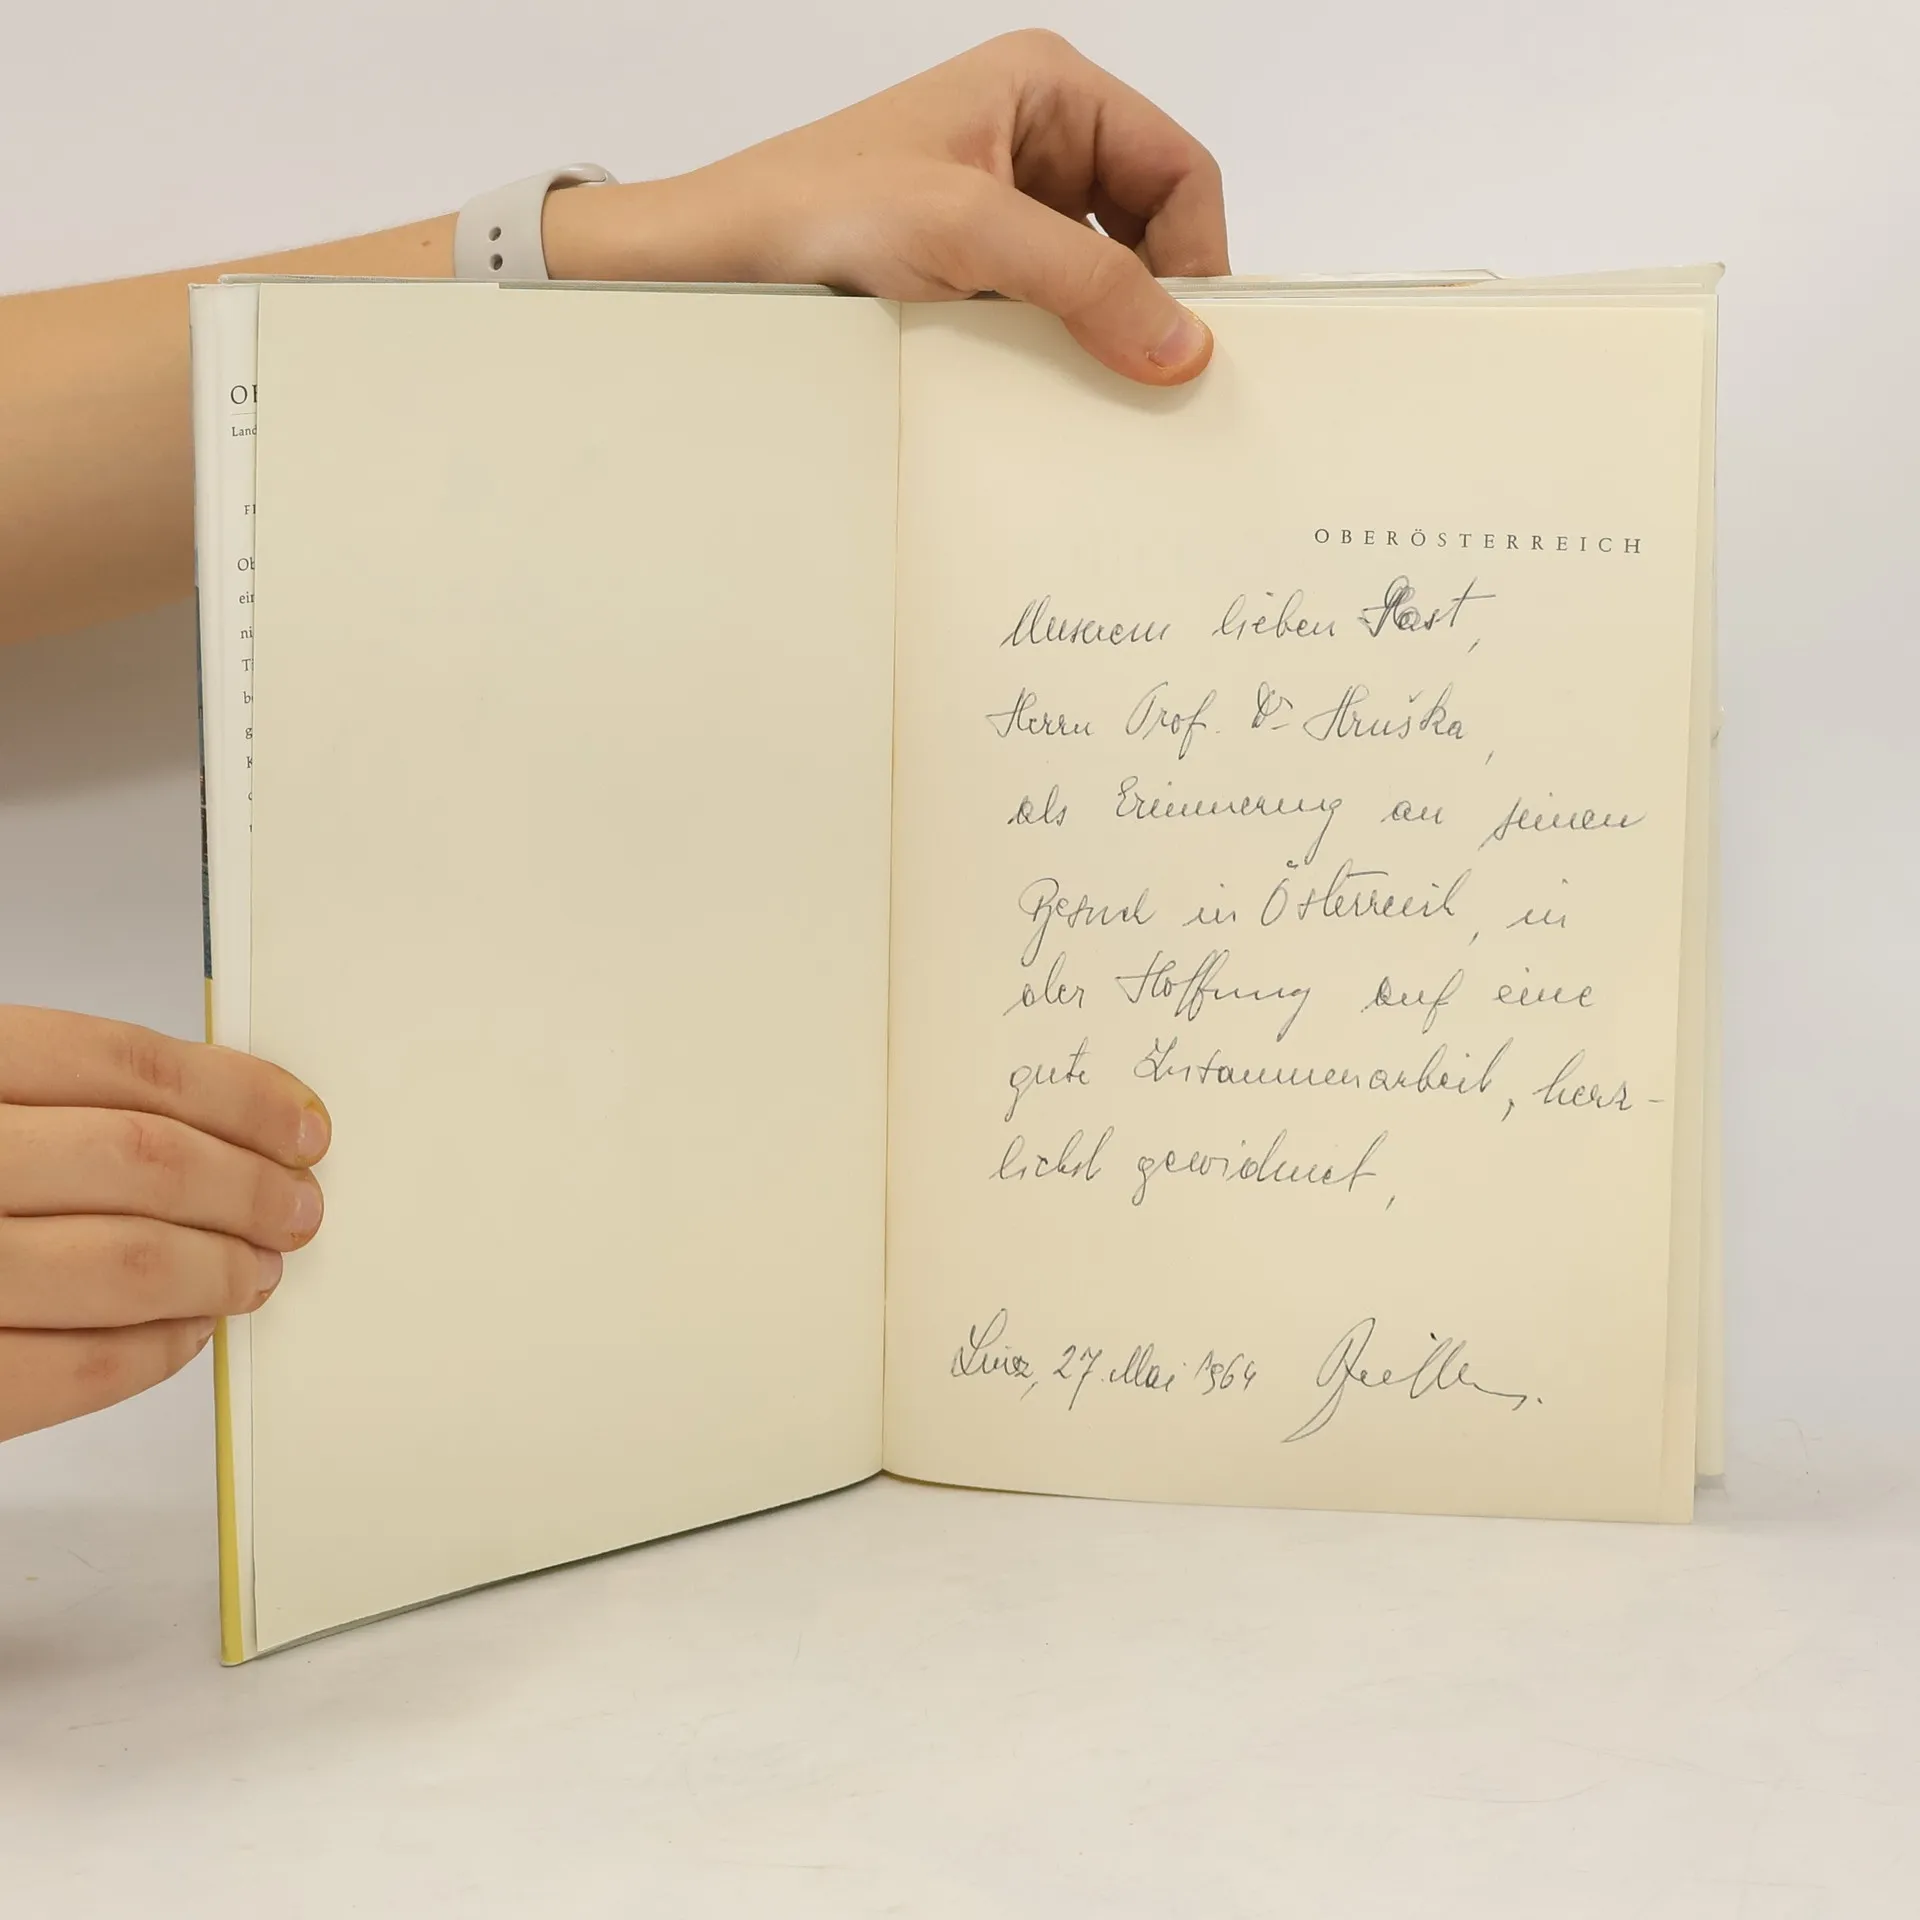 OB
Land
FE
Ob
ein
ni
T
be
g
K
OBERÖSTERREICH
Unserem lieben Gast,
Herrn Prof. Dr Hruška,
als Erinnerung an seinen
Besuch in Österreich, in
der Hoffnung auf eine
gute Zusammenarbeit, herz-
lichst gewidmet,
Linz, 27. Mai 1964